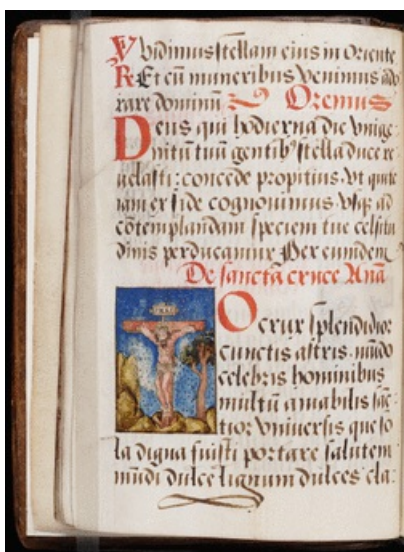 V Vidimus stellam eius in Oriente
R Et cũ muneribus venimus ado
rare dominũ Oremus
Deus qui hodierna die Vnige
nitũ tuũ gentibꝰ stella duce re
uelasti: concede propitius Vt qui te
iam ex fide cognouimus Vsqꝫ ad
cõtemplandam speciem tue celsitu
dinis perducamur Per eundem
De sancta cruce Anã
O crux splendidior
cunctis astris mũdo
celebris hominibus
multũ amabilis sãc
tior Vniuersis que so
la digna fuisti portare salutem
mũdi dulce lignum dulces cla: